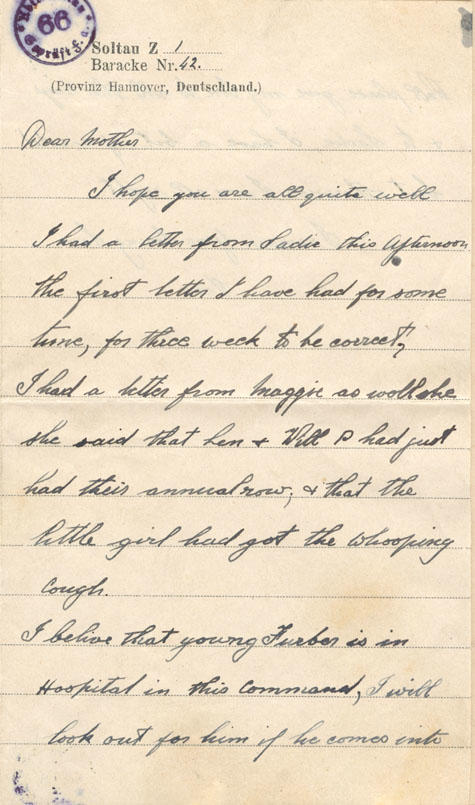 66
geprüft
Soltau Z 1
Baracke Nr. 42.
(Provinz Hannover, Deutschland.)
Dear Mother
I hope you are all quite well
I had a letter from Sadie this Afternoon
the first letter I have had for some
time, for three week to be correct,
I had a letter from Maggie as well she
she said that her + Will P had just
had their annual row; + that the
little girl had got the whooping
cough.
I belive that young Furber is in
Hospital in this command, I will
look out for him if he comes into